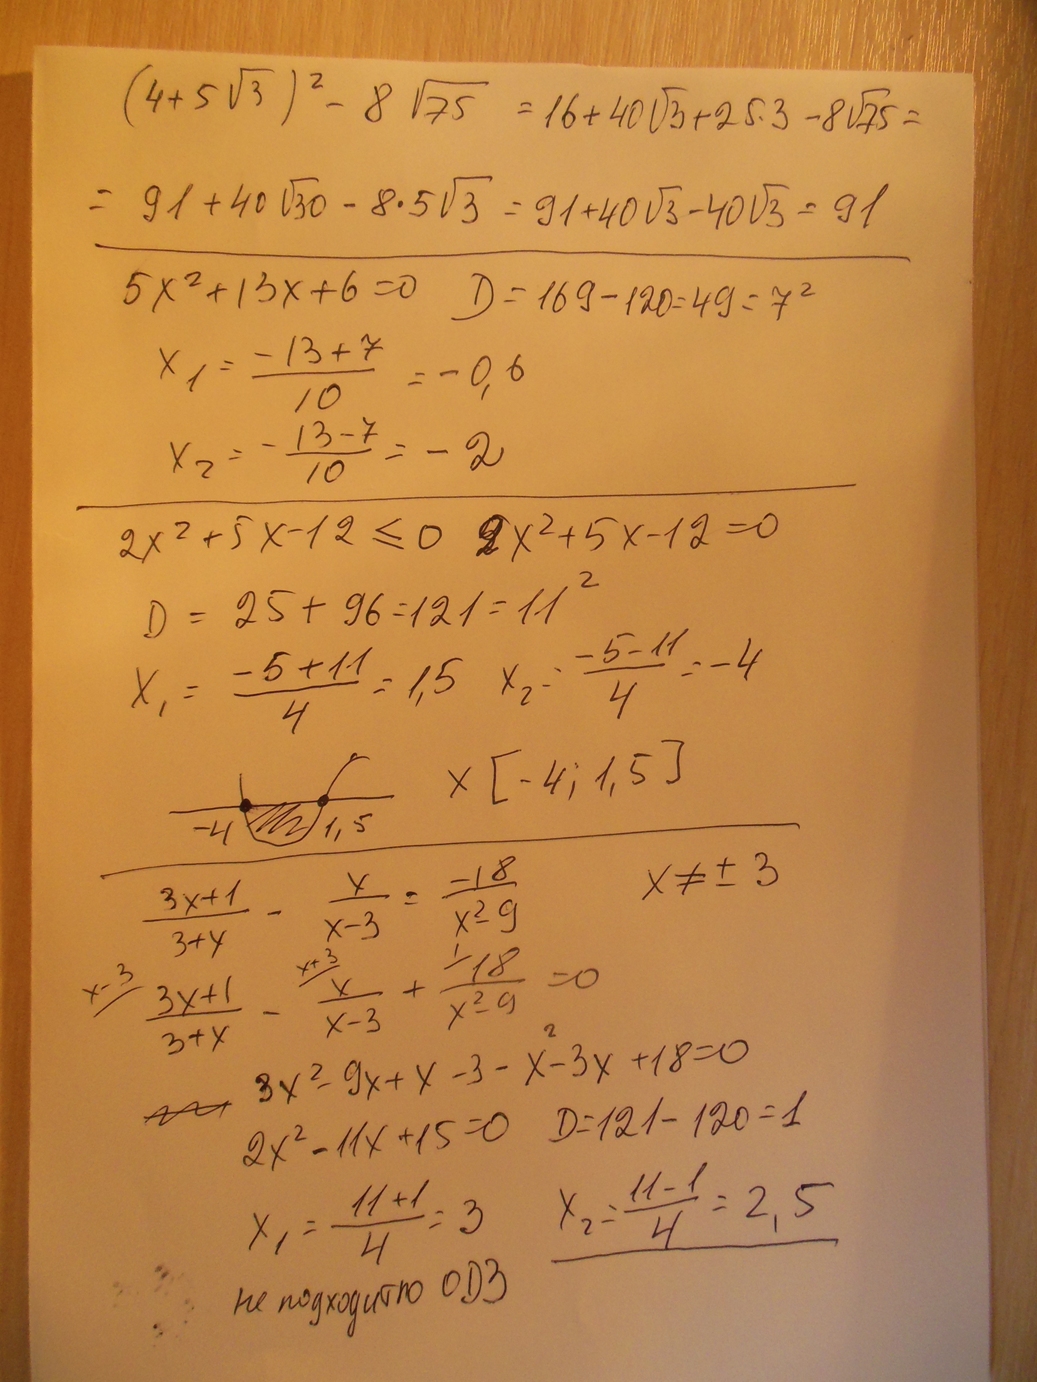 (4+5√3)² - 8√75 = 16+40√3+25·3-8√75=
= 91+40√30 - 8·5√3 = 91+40√3-40√3 = 91
5x²+13x+6=0 D=169-120=49=7²
x₁ = (-13+7)/10 = -0,6
x₂ = (-13-7)/10 = -2
2x²+5x-12≤0 2x²+5x-12=0
D = 25+96=121=11²
x₁ = (-5+11)/4 = 1,5 x₂ = (-5-11)/4 = -4
x [-4; 1,5]
-4 1,5
(3x+1)/(3+x) - x/(x-3) = -18/(x²-9) x≠±3
x-3/ (3x+1)/(3+x) - x+3/ x/(x-3) + 1/ 18/(x²-9) =0
3x²-9x+x-3-x²-3x+18=0
2x²-11x+15=0 D=121-120=1
x₁ = (11+1)/4 = 3 x₂ = (11-1)/4 = 2,5
не подходит по ОДЗ